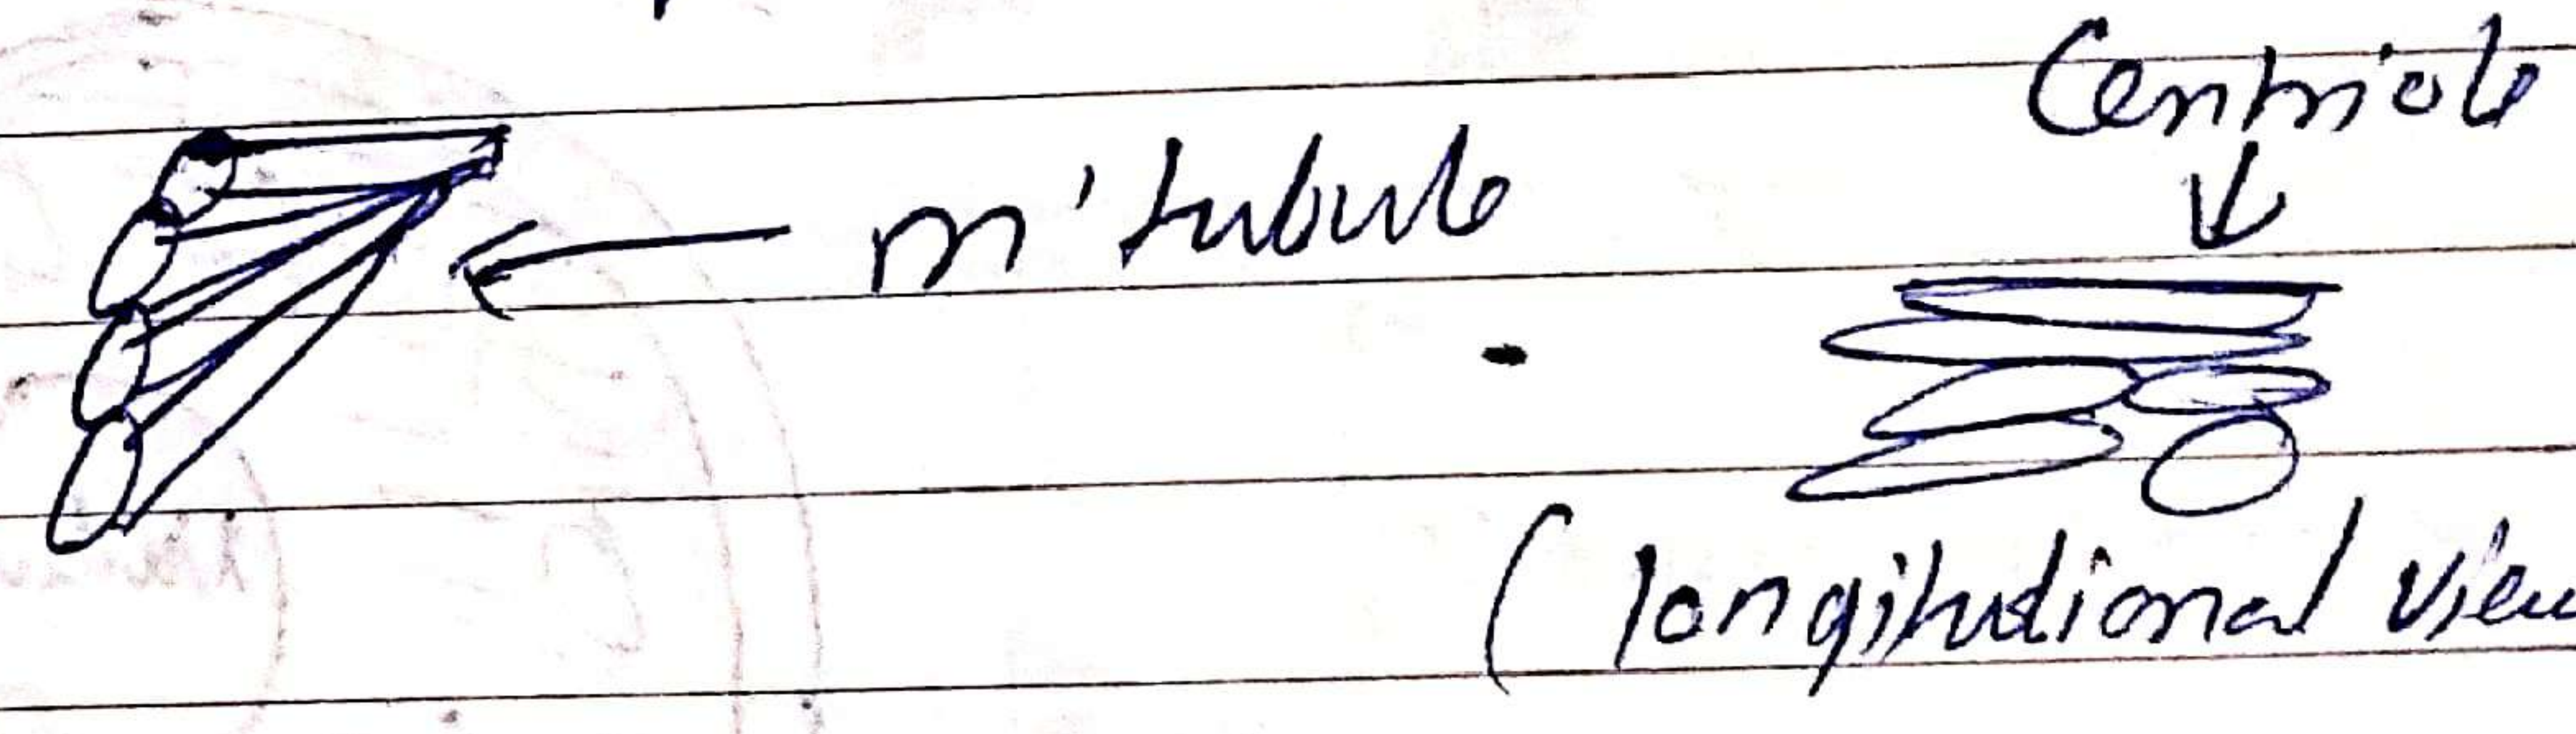 Centriole
m'tubule
(longitudional view